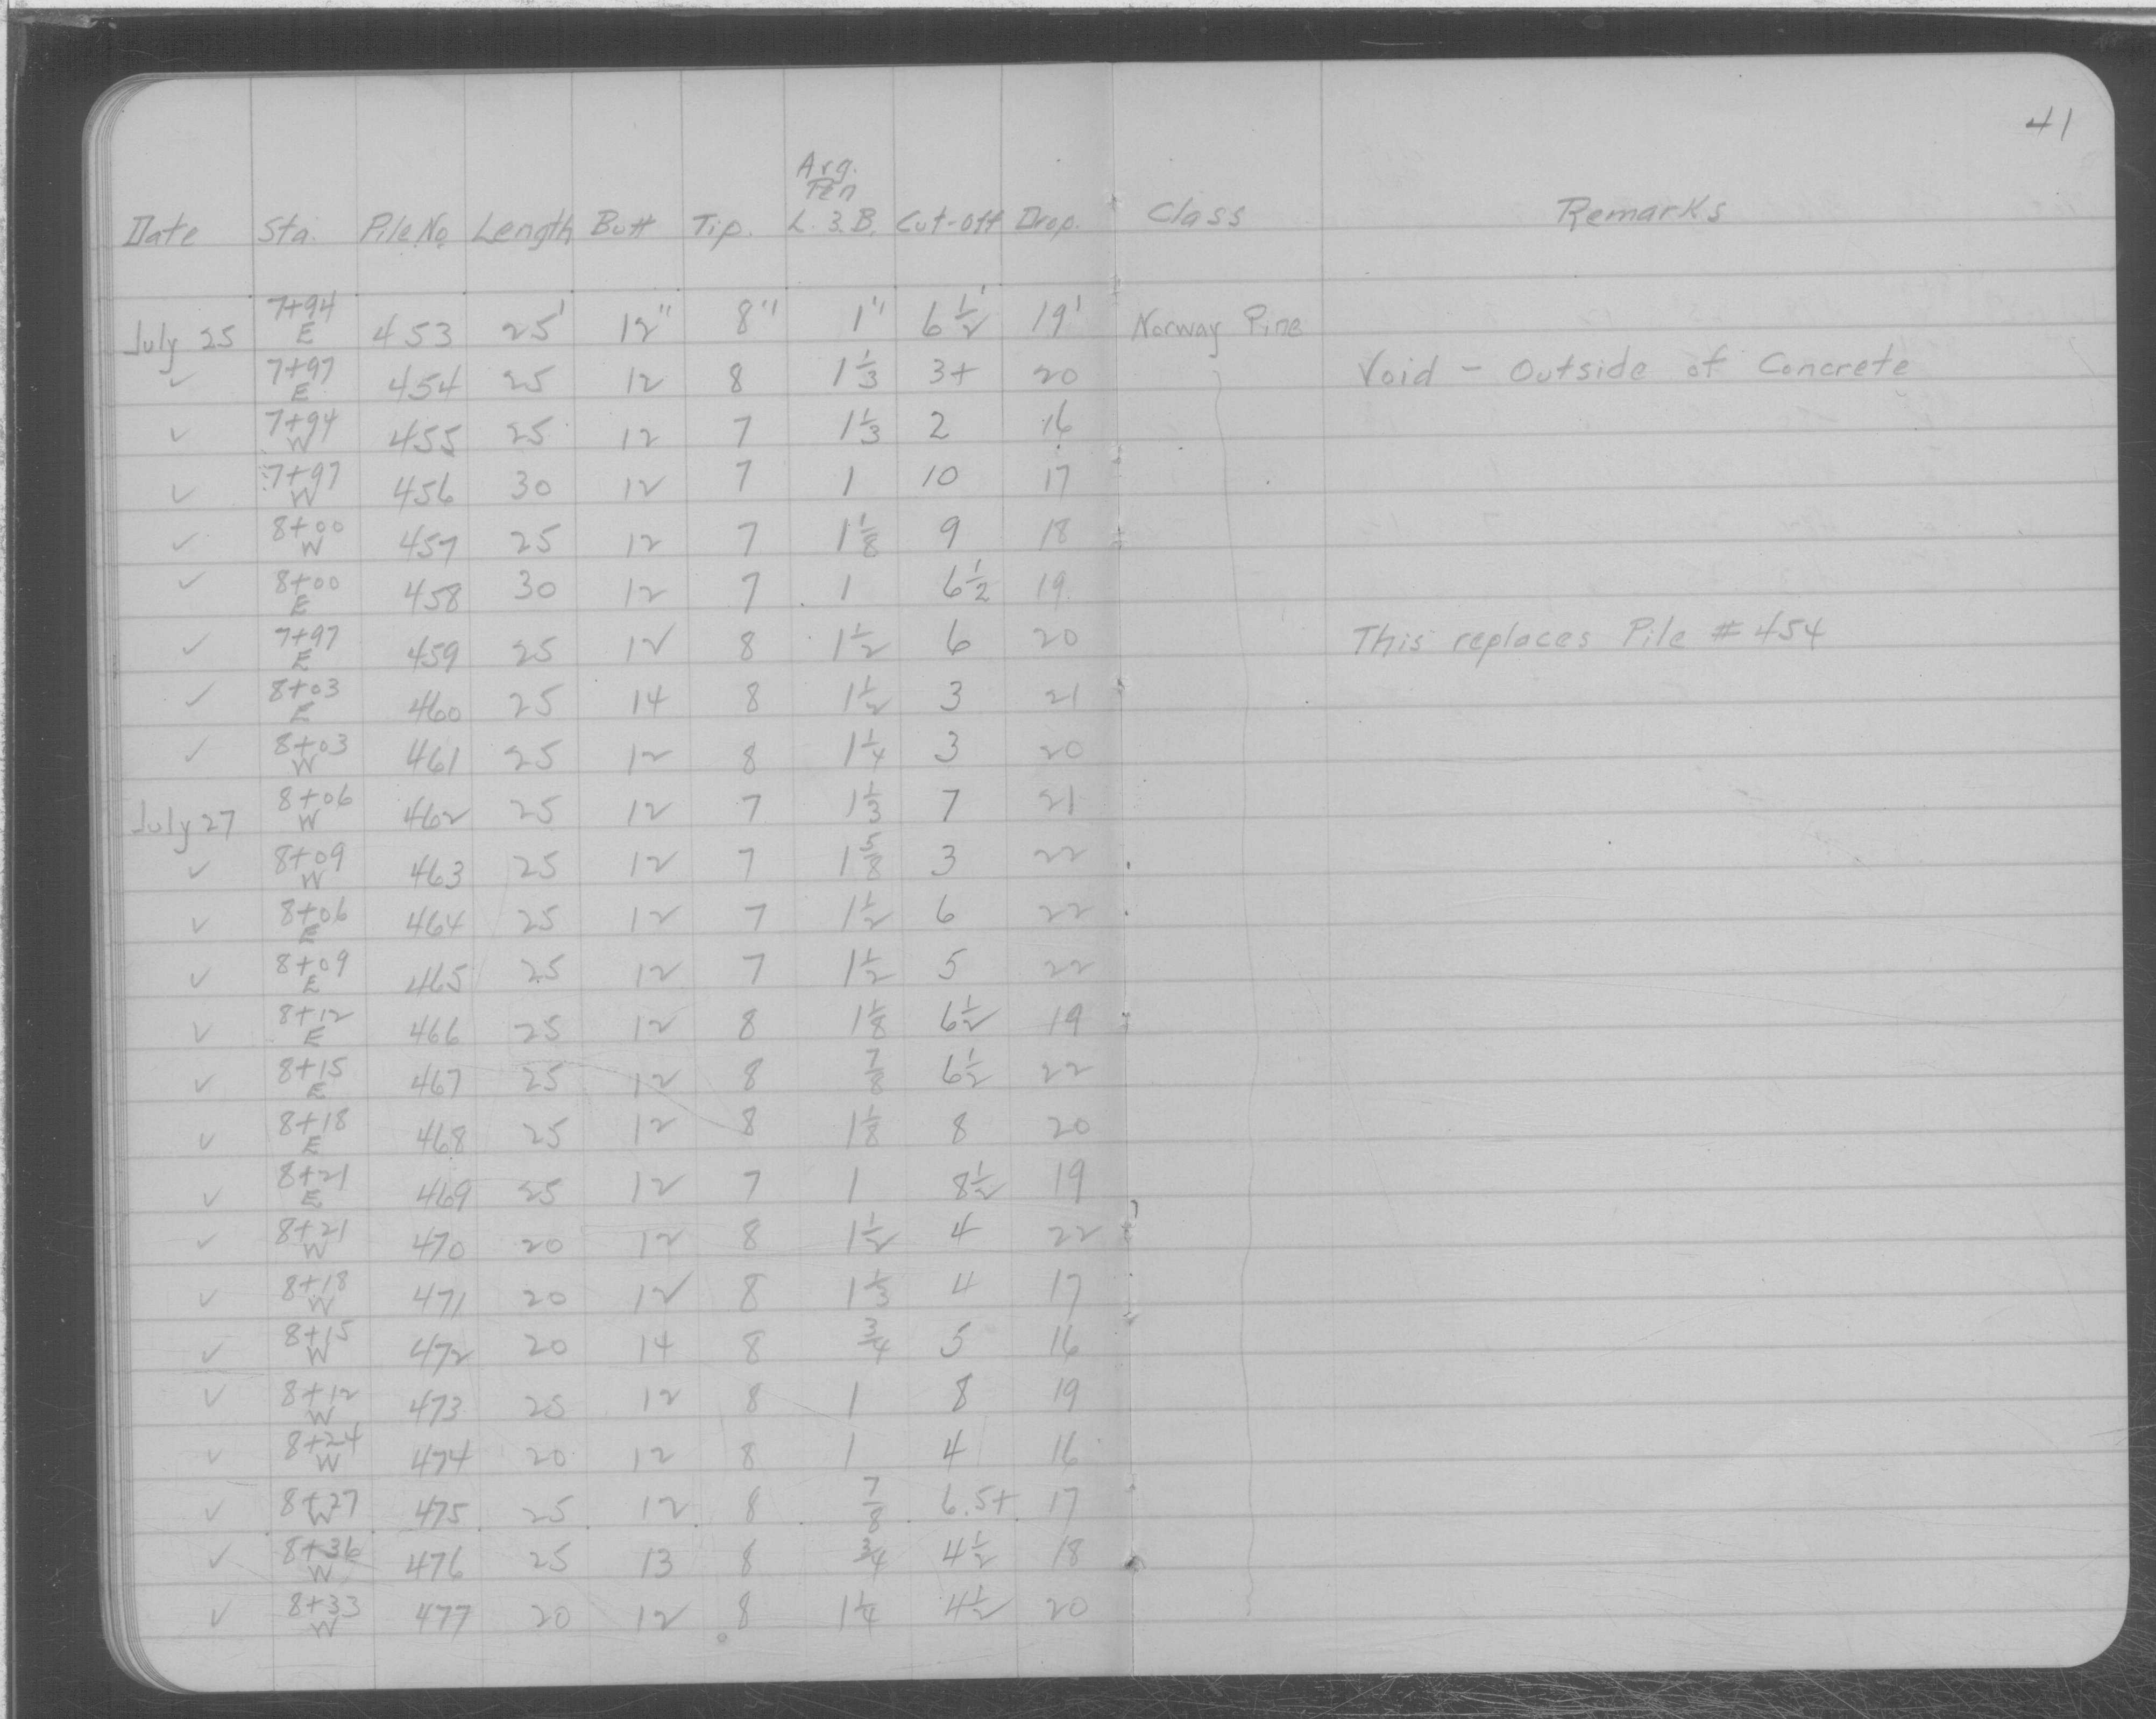 41
Avg.
Pen
Date Sta. Pile No. Length Butt Tip. L. 3. B. Cut-off Drop. Class Remarks
July 25 7+94 E 453 25' 12" 8" 1" 6 1/2' 19' Norway Pine
✓ 7+97 E 454 25 12 8 1 1/3 3+ 20 Void - Outside of Concrete
✓ 7+94 W 455 25 12 7 1 1/3 2 16
✓ 7+97 W 456 30 12 7 1 10 17
✓ 8+00 W 457 25 12 7 1 1/8 9 18
✓ 8+00 E 458 30 12 7 1 6 1/2 19
✓ 7+97 E 459 25 12 8 1 1/2 6 20 This replaces Pile # 454
✓ 8+03 E 460 25 14 8 1 1/2 3 21
✓ 8+03 W 461 25 12 8 1 1/4 3 20
July 27 8+06 W 462 25 12 7 1 1/3 7 21
✓ 8+09 W 463 25 12 7 1 5/8 3 22
✓ 8+06 E 464 25 12 7 1 1/2 6 22
✓ 8+09 E 465 25 12 7 1 1/2 5 22
✓ 8+12 E 466 25 12 8 1 1/8 6 1/2 19
✓ 8+15 E 467 25 12 8 7/8 6 1/2 22
✓ 8+18 E 468 25 12 8 1 1/8 8 20
✓ 8+21 E 469 25 12 7 1 8 1/2 19
✓ 8+21 W 470 20 12 8 1 1/2 4 22
✓ 8+18 W 471 20 12 8 1 1/3 4 17
✓ 8+15 W 472 20 14 8 3/4 5 16
✓ 8+12 W 473 25 12 8 1 8 19
✓ 8+24 W 474 20 12 8 1 4 16
✓ 8+27 W 475 25 12 8 7/8 6.5+ 17
✓ 8+36 W 476 25 13 8 3/4 4 1/2 18
✓ 8+33 W 477 20 12 8 1 1/4 4 1/2 20